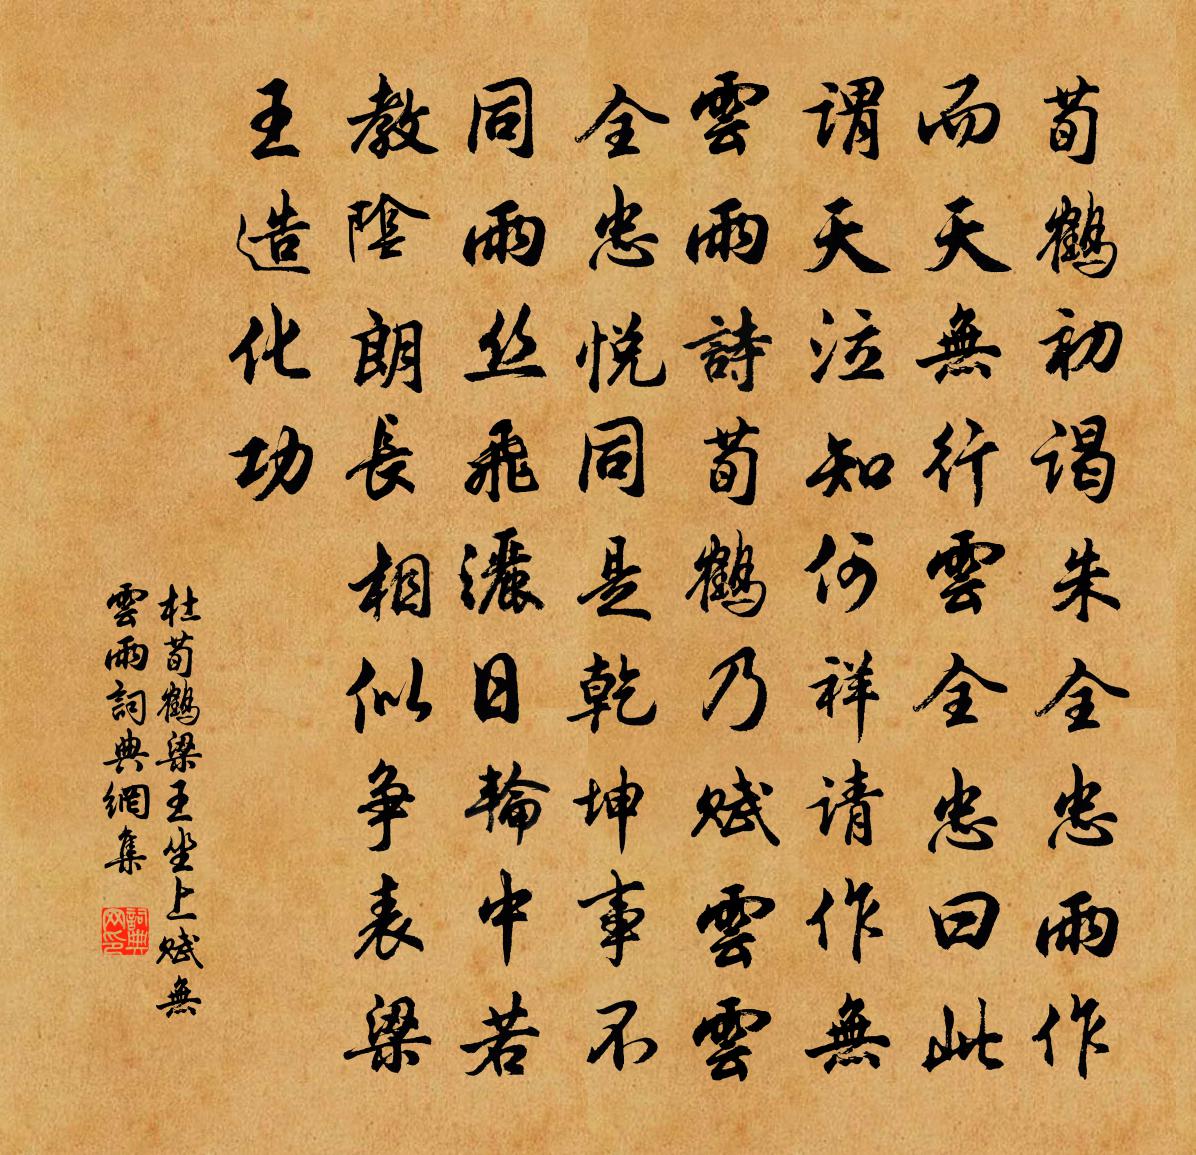 荀鶴初谒朱全忠雨作
而天無行雲全忠曰此
谓天泣知何祥请作無
雲雨詩荀鶴乃赋雲雲
全忠悦同是乾坤事不
同雨丝飛灑日輪中若
教陰朗長相似争表梁
王造化功
杜荀鶴梁王坐上赋無
雲雨詞典網集
詞典网印